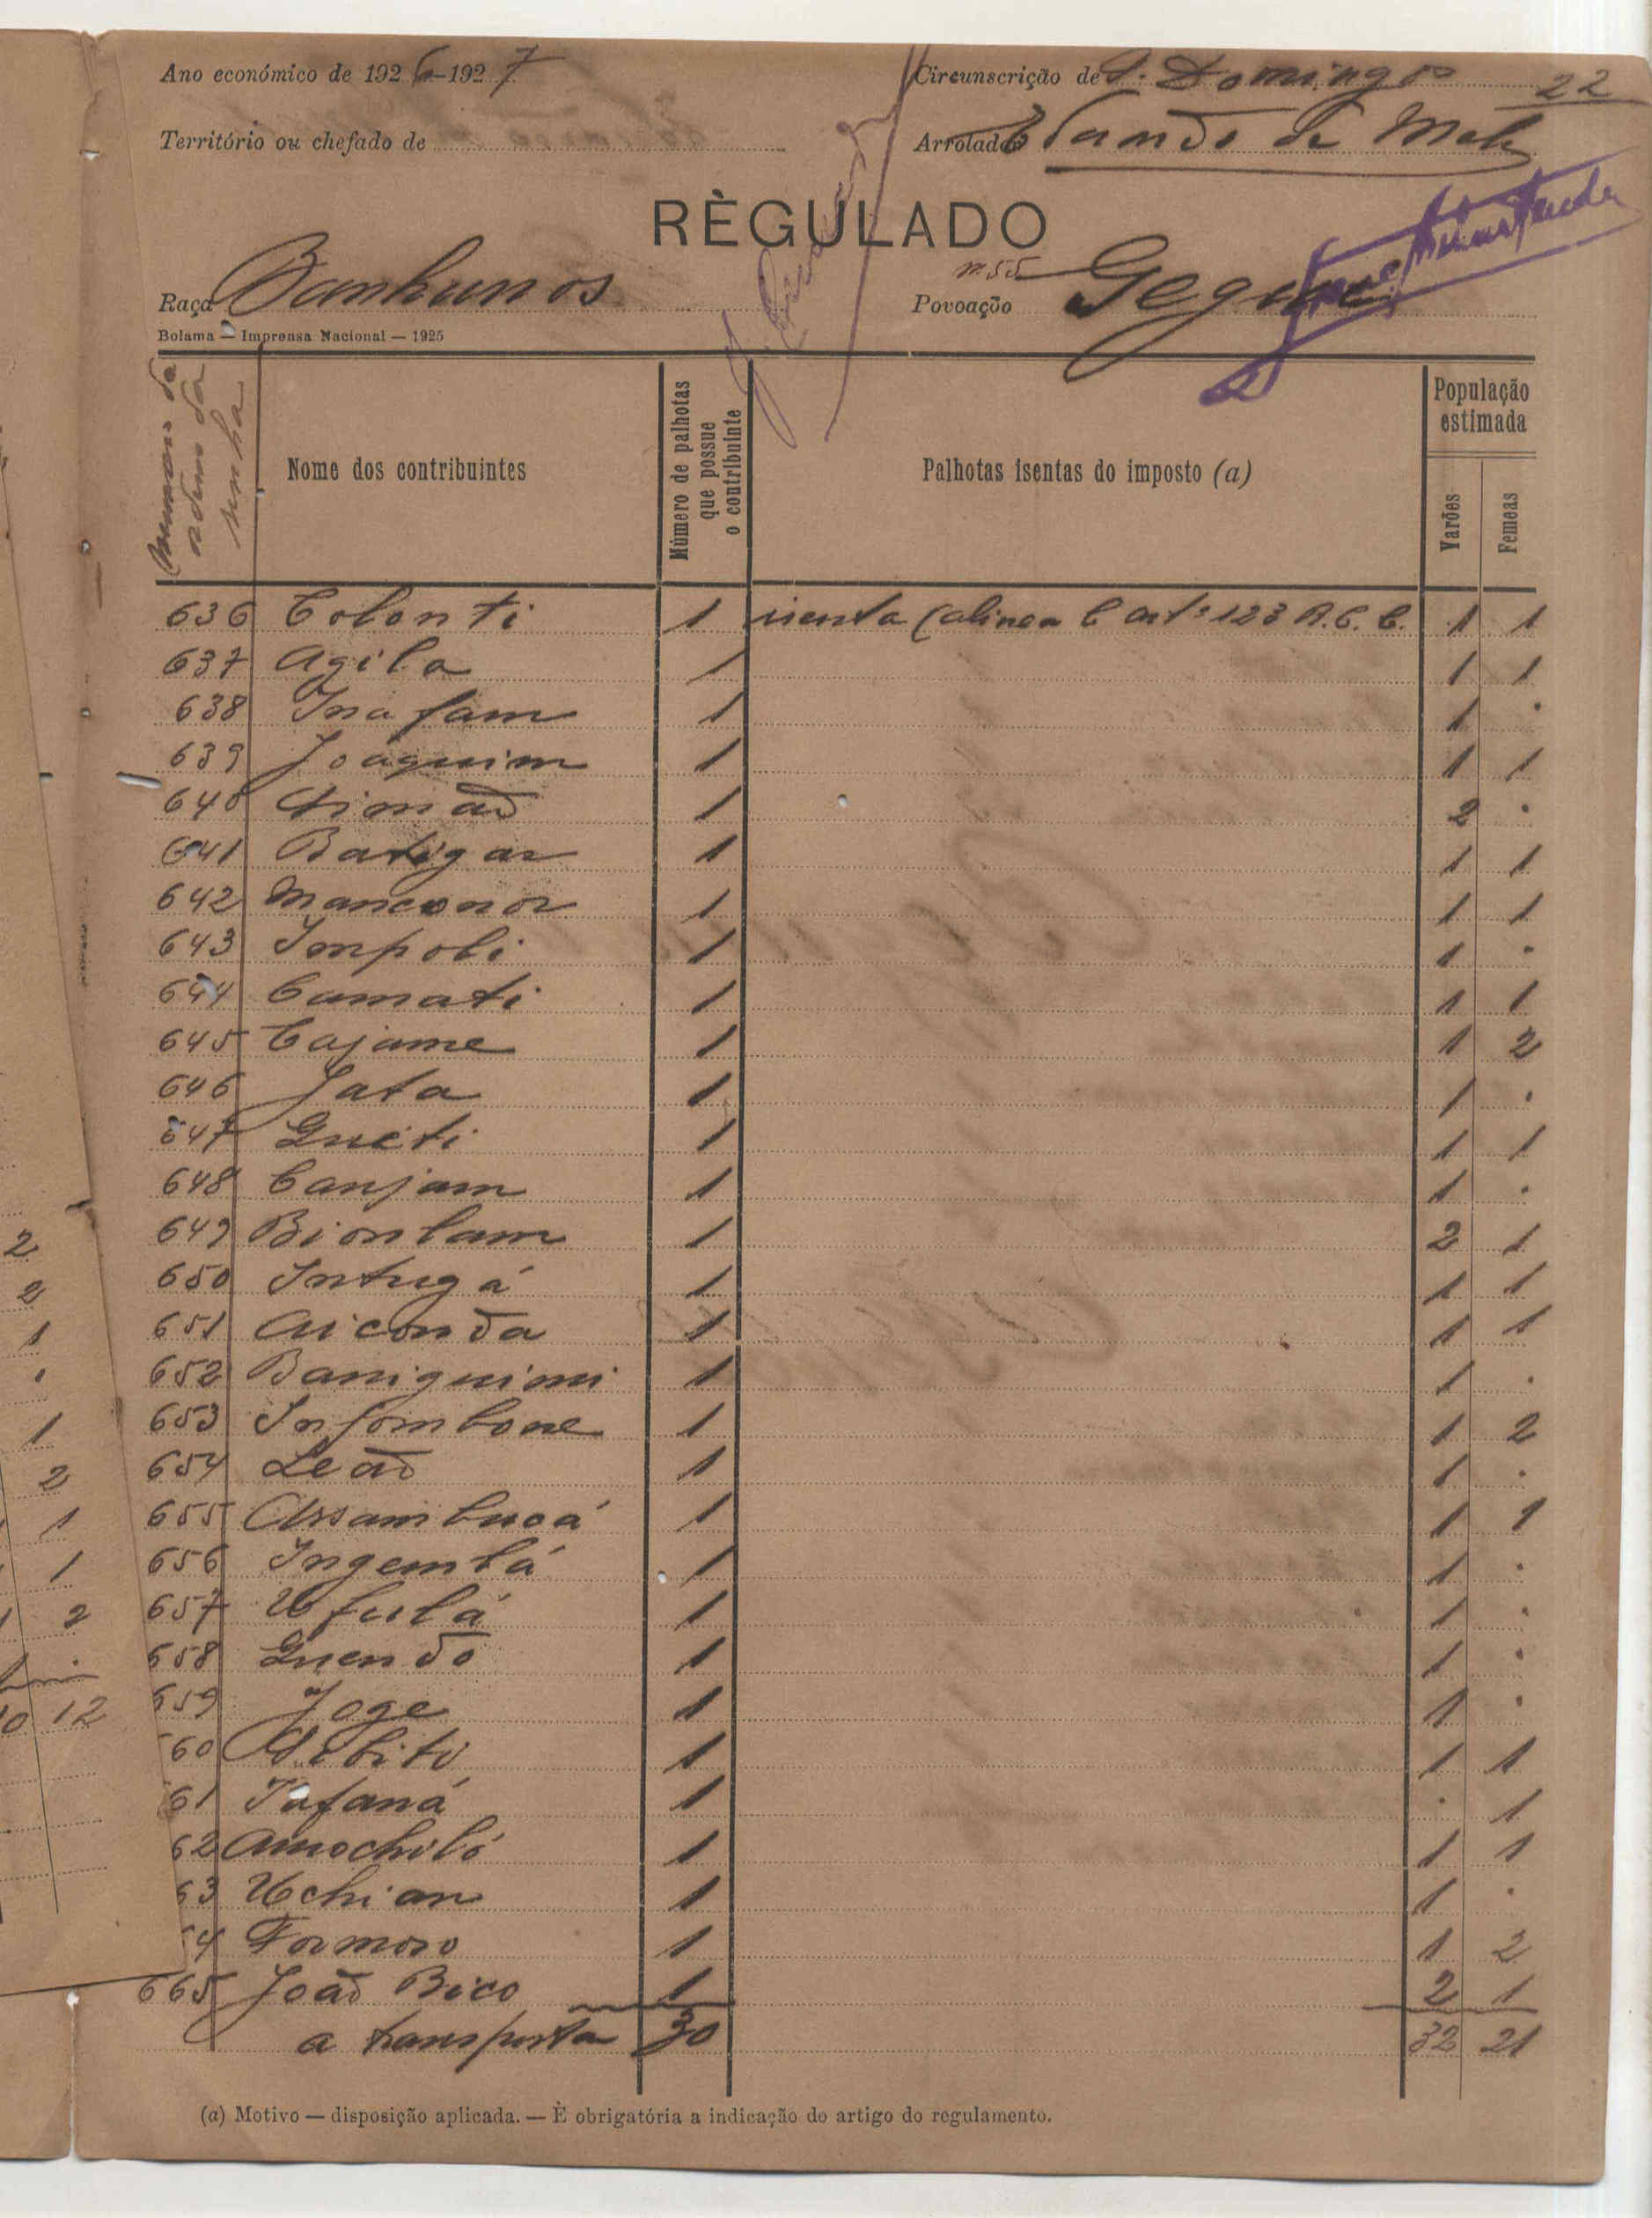 Ano económico de 1926-1927
Circunscrição de S. Domingos 22
Território ou chefado de
Arrolador
RÈGULADO
Raça Banhunos
n.º 55
Povoação
Bolama — Imprensa Nacional — 1925
Numero de ordem da senha
Nome dos contribuintes
Número de palhotas que possue o contribuinte
Palhotas isentas do imposto (a)
População estimada
Varões
Femeas
636 Colonti 1 isenta (alinea C artº 123 R.C.C. 1 1
637 Agila 1 1 1
638 Inafam 1 1 .
639 Joaquim 1 1 1
640 Simão 1 2 .
641 Batigar 1 1 1
642 Manconor 1 1 1
643 Impoli 1 1 .
644 Camati 1 1 1
645 Cajame 1 1 2
646 Jata 1 1 .
647 Gueti 1 1 1
648 Canjam 1 1 .
649 Bionlam 1 2 1
650 Intugá 1 1 1
651 Aiconda 1 1 1
652 Baniguimi 1 1 .
653 Infombone 1 1 2
654 Leão 1 1 .
655 Assambucá 1 1 1
656 Ingembá 1 1 .
657 Ufulá 1 1 .
658 Guendo 1 1 .
659 Joge 1 1 .
60 1 1 1
61 Tafaná 1 . 1
62 Amochiló 1 1 1
63 Uchian 1 1 .
4 Formoso 1 1 2
665 João Bico 1 2 1
a transporta 30 32 21
(a) Motivo — disposição aplicada. — È obrigatória a indicação do artigo do regulamento.
2
2
1
.
1
2
1
1
2
.
12